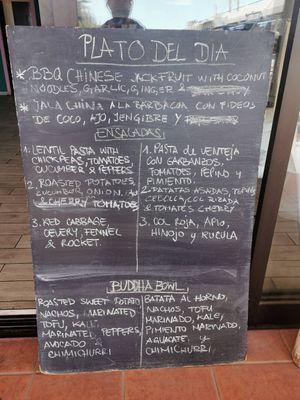 PLATO DEL DIA
* BBQ CHINESE JACKFRUIT WITH COCONUT
NOODLES, GARLIC, GINGER &
* JALA CHINA A LA BARBACOA CON FIDEOS
DE COCO, AJO, JENGIBRE Y
ENSALADAS
1. LENTIL PASTA WITH
CHICKPEAS, TOMATOES,
CUCUMBER & PEPPERS
2. ROASTED POTATOES,
CUCUMBER, ONION
& CHERRY TOMATOES
3. RED CABBAGE,
CELERY, FENNEL
& ROCKET.
1. PASTA DE LENTEJA
CON GARBANZOS,
TOMATES, PEPINO Y
PIMIENTO.
2. PATATAS ASADAS, PEPINO,
CEBOLLA, COL RIZADA
& TOMATES CHERRY
3. COL ROJA, APIO,
HINOJO Y RUCULA
BUDDHA BOWL
ROASTED SWEET POTATO
NACHOS, MARINATED
TOFU, KALE,
MARINATED PEPPERS,
AVOCADO &
CHIMICHURRI
BATATA AL HORNO,
NACHOS, TOFU
MARINADO, KALE,
PIMIENTO MARINADO,
AGUACATE Y
CHIMICHURRI.